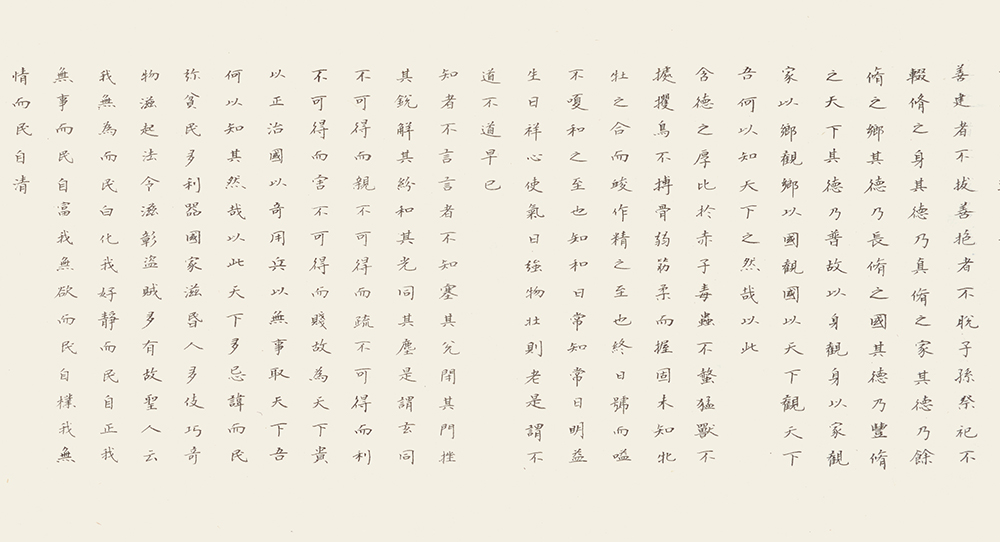 善建者不拔善抱者不脫子孫祭祀不
輟脩之身其德乃真脩之家其德乃餘
脩之鄉其德乃長脩之國其德乃豐脩
之天下其德乃普故以身觀身以家觀
家以鄉觀鄉以國觀國以天下觀天下
吾何以知天下之然哉以此
含德之厚比於赤子毒蟲不螫猛獸不
據攫鳥不搏骨弱筋柔而握固未知牝
牡之合而峻作精之至也終日號而嗌
不嗄和之至也知和曰常知常曰明益
生曰祥心使氣曰強物壯則老是謂不
道不道早已
知者不言言者不知塞其兌閉其門挫
其銳解其紛和其光同其塵是謂玄同
不可得而親不可得而疏不可得而利
不可得而害不可得而賤故為天下貴
以正治國以奇用兵以無事取天下吾
何以知其然哉以此天下多忌諱而民
弥貧民多利器國家滋昏人多伎巧奇
物滋起法令滋彰盜賊多有故聖人云
我無為而民自化我好靜而民自正我
無事而民自富我無欲而民自樸我無
情而民自清